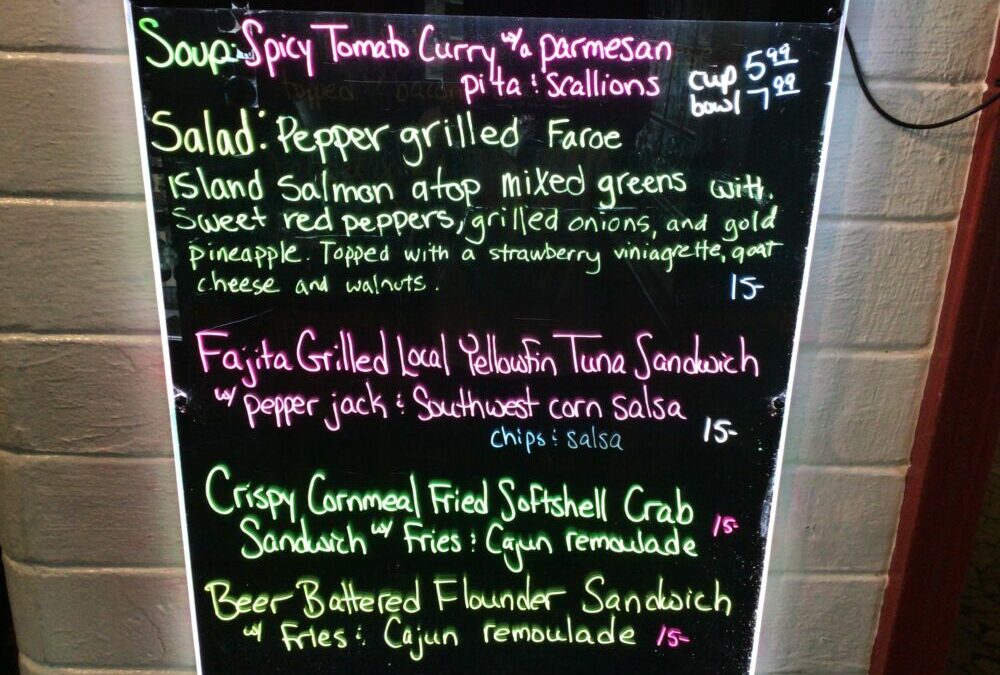 Soup: Spicy Tomato Curry w/a parmesan
pita & scallions cup 5.99
bowl 7.99
Salad: Pepper grilled Faroe
Island Salmon atop mixed greens with
Sweet red peppers, grilled onions, and gold
pineapple. Topped with a strawberry viniagrette, goat
cheese and walnuts. 15-
Fajita Grilled Local Yellowfin Tuna Sandwich
w/ pepper jack & Southwest corn salsa 15-
chips & salsa
Crispy Cornmeal Fried Softshell Crab
Sandwich w/ Fries & Cajun remoulade 15-
Beer Battered Flounder Sandwich
w/ Fries & Cajun remoulade 15-